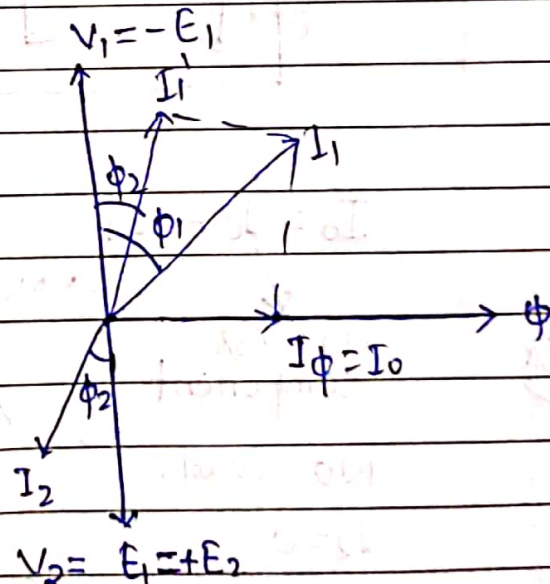 V₁ = -E₁
I₁'
I₁
ϕ₂
ϕ₁
ϕ
I_ϕ = I₀
ϕ₂
I₂
V₂ = E₁ = +E₂